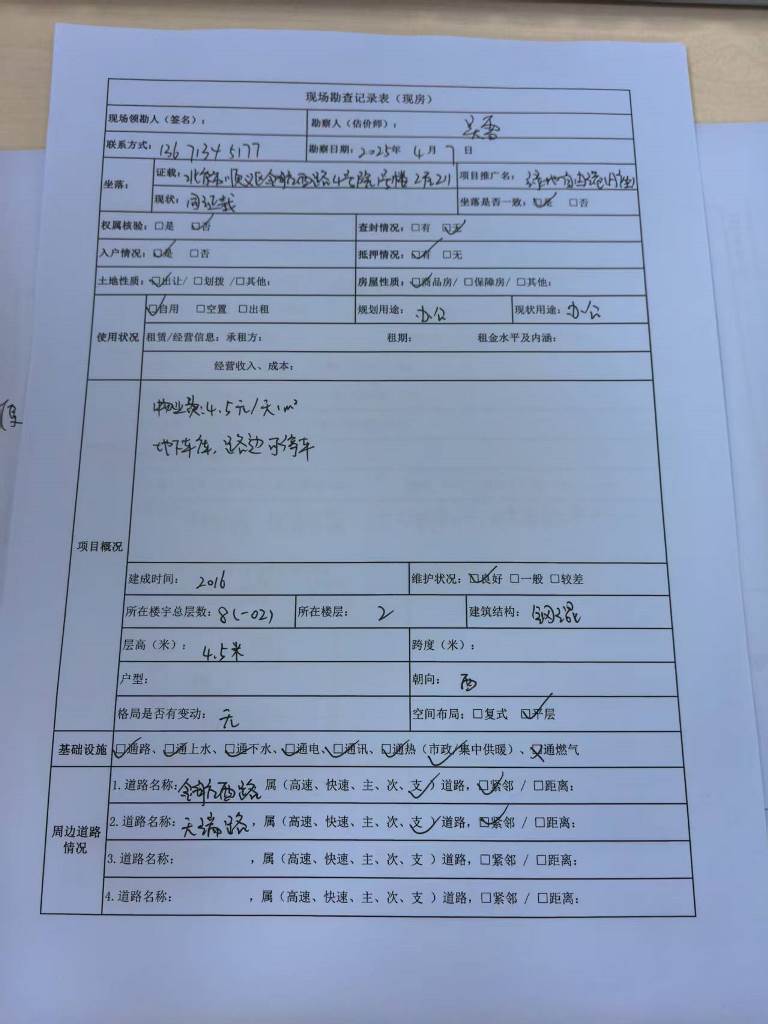 现场勘查记录表（现房）
现场领勘人（签名）： 勘察人（估价师）：
联系方式：136 7134 5177 勘察日期：2025年 4 月 7 日
坐落： 证载：北京市顺义区金航西路4号院1号楼2层211 项目推广名：
现状：同证载 坐落是否一致：☑是 □否
权属核验：□是 ☑否 查封情况：□有 ☑无
入户情况：☑是 □否 抵押情况：☑有 □无
土地性质：☑出让/□划拨 /□其他： 房屋性质：☑商品房/□保障房/□其他：
使用状况 ☑自用 □空置 □出租 规划用途：办公 现状用途：办公
租赁/经营信息：承租方： 租期： 租金水平及内涵：
经营收入、成本：
项目概况
物业费：4.5元/天·m²
地下车库，路边可停车
建成时间：2016 维护状况：☑良好 □一般 □较差
所在楼宇总层数：8(-02) 所在楼层：2 建筑结构：钢混
层高（米）：4.5米 跨度（米）：
户型： 朝向：西
格局是否有变动：无 空间布局：□复式 ☑平层
基础设施 ☑通路、☑通上水、☑通下水、☑通电、☑通讯、☑通热（市政/集中供暖）、☒通燃气
周边道路情况
1.道路名称：金航西路 属（高速、快速、主、次、支✓）道路，☑紧邻 / □距离：
2.道路名称：天瑞路，属（高速、快速、主、次、支✓）道路，☑紧邻 / □距离：
3.道路名称： ，属（高速、快速、主、次、支 ）道路，□紧邻 / □距离：
4.道路名称： ，属（高速、快速、主、次、支 ）道路，□紧邻 / □距离：